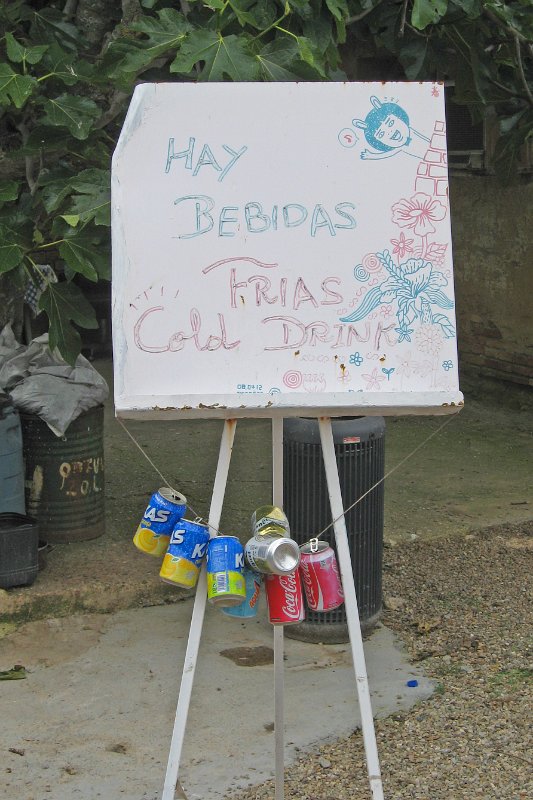 HAY
BEBIDAS
FRIAS
Cold DRINK
08.04.12
KAS
KAS
Coca-Cola
Coca-Cola